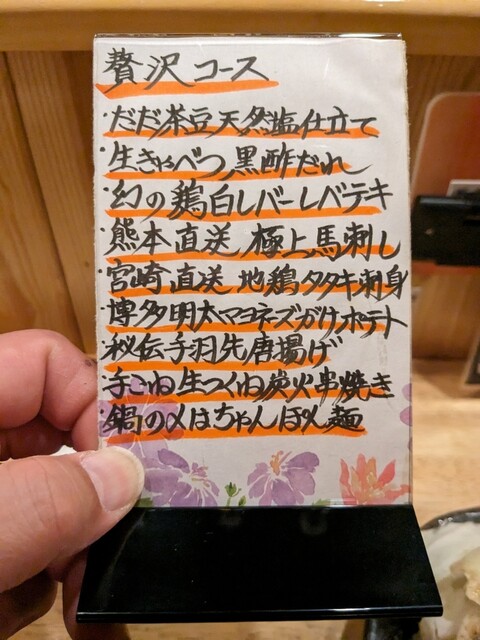 贅沢コース
・だだ茶豆天然塩仕立て
・生きゃべつ黒酢だれ
・幻の鶏白レバーレバテキ
・熊本直送 極上馬刺し
・宮崎直送 地鶏タタキ刺身
・博多明太マヨネーズがけポテト
・秘伝手羽先唐揚げ
・手こね生つくね炭火串焼き
・鍋の〆はちゃんぽん麺